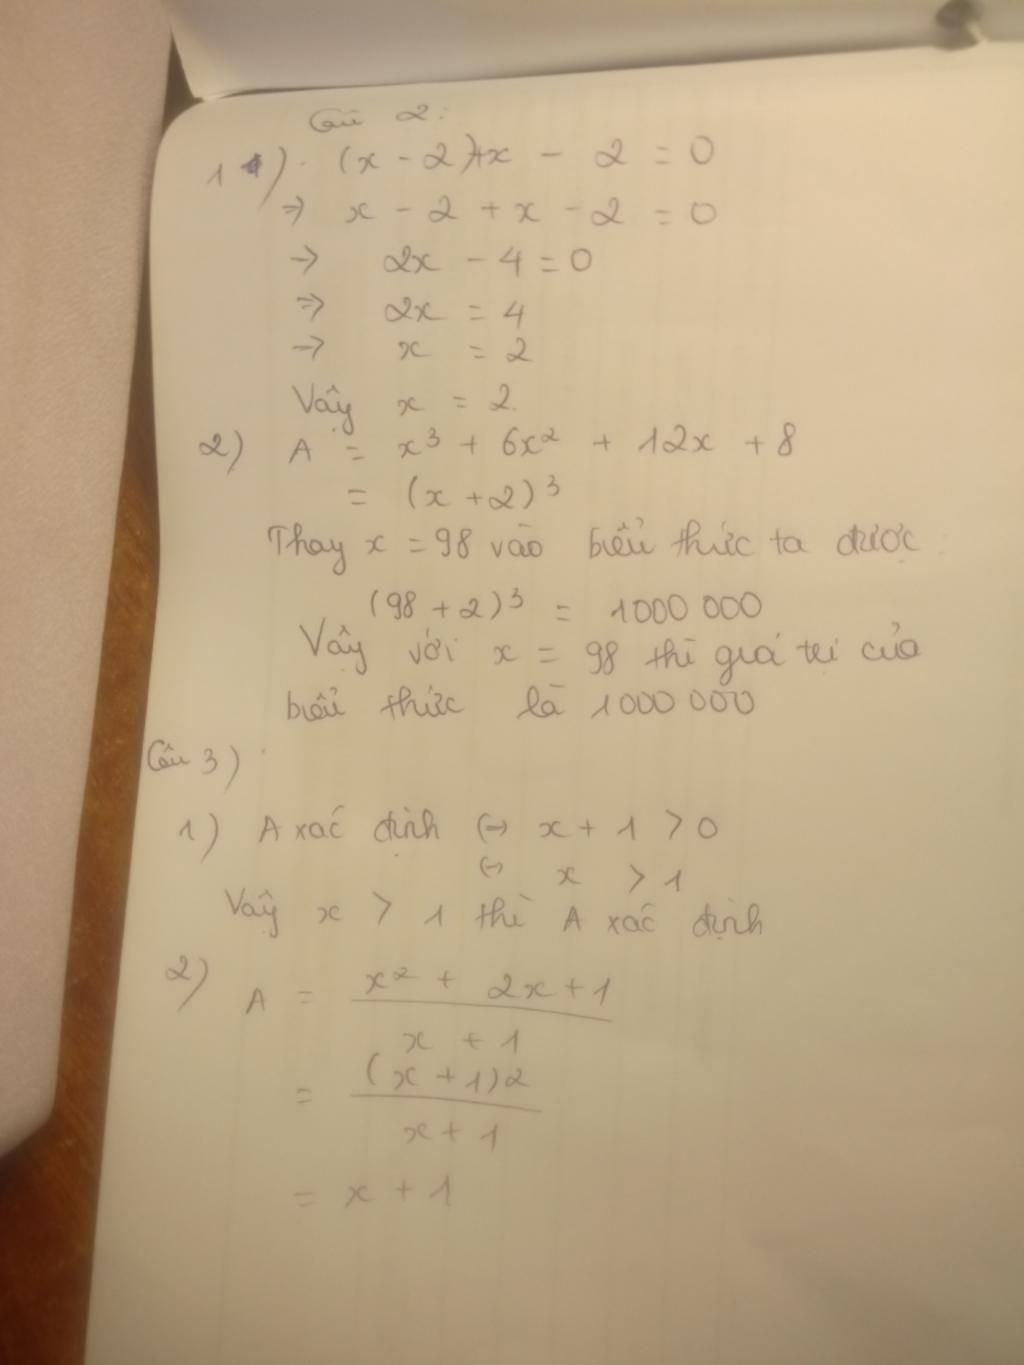 Câu 2:
1). (x - 2)+x - 2 = 0
=> x - 2 + x - 2 = 0
=> 2x - 4 = 0
=> 2x = 4
=> x = 2
Vậy x = 2.
2) A = x³ + 6x² + 12x + 8
= (x + 2)³
Thay x = 98 vào biểu thức ta được
(98 + 2)³ = 1000 000
Vậy với x = 98 thì giá trị của
biểu thức là 1000 000
Câu 3)
1) A xác định (=) x + 1 > 0
(=) x > 1
Vậy x > 1 thì A xác định
2) A = x² + 2x + 1
x + 1
= (x + 1)2
x + 1
= x + 1